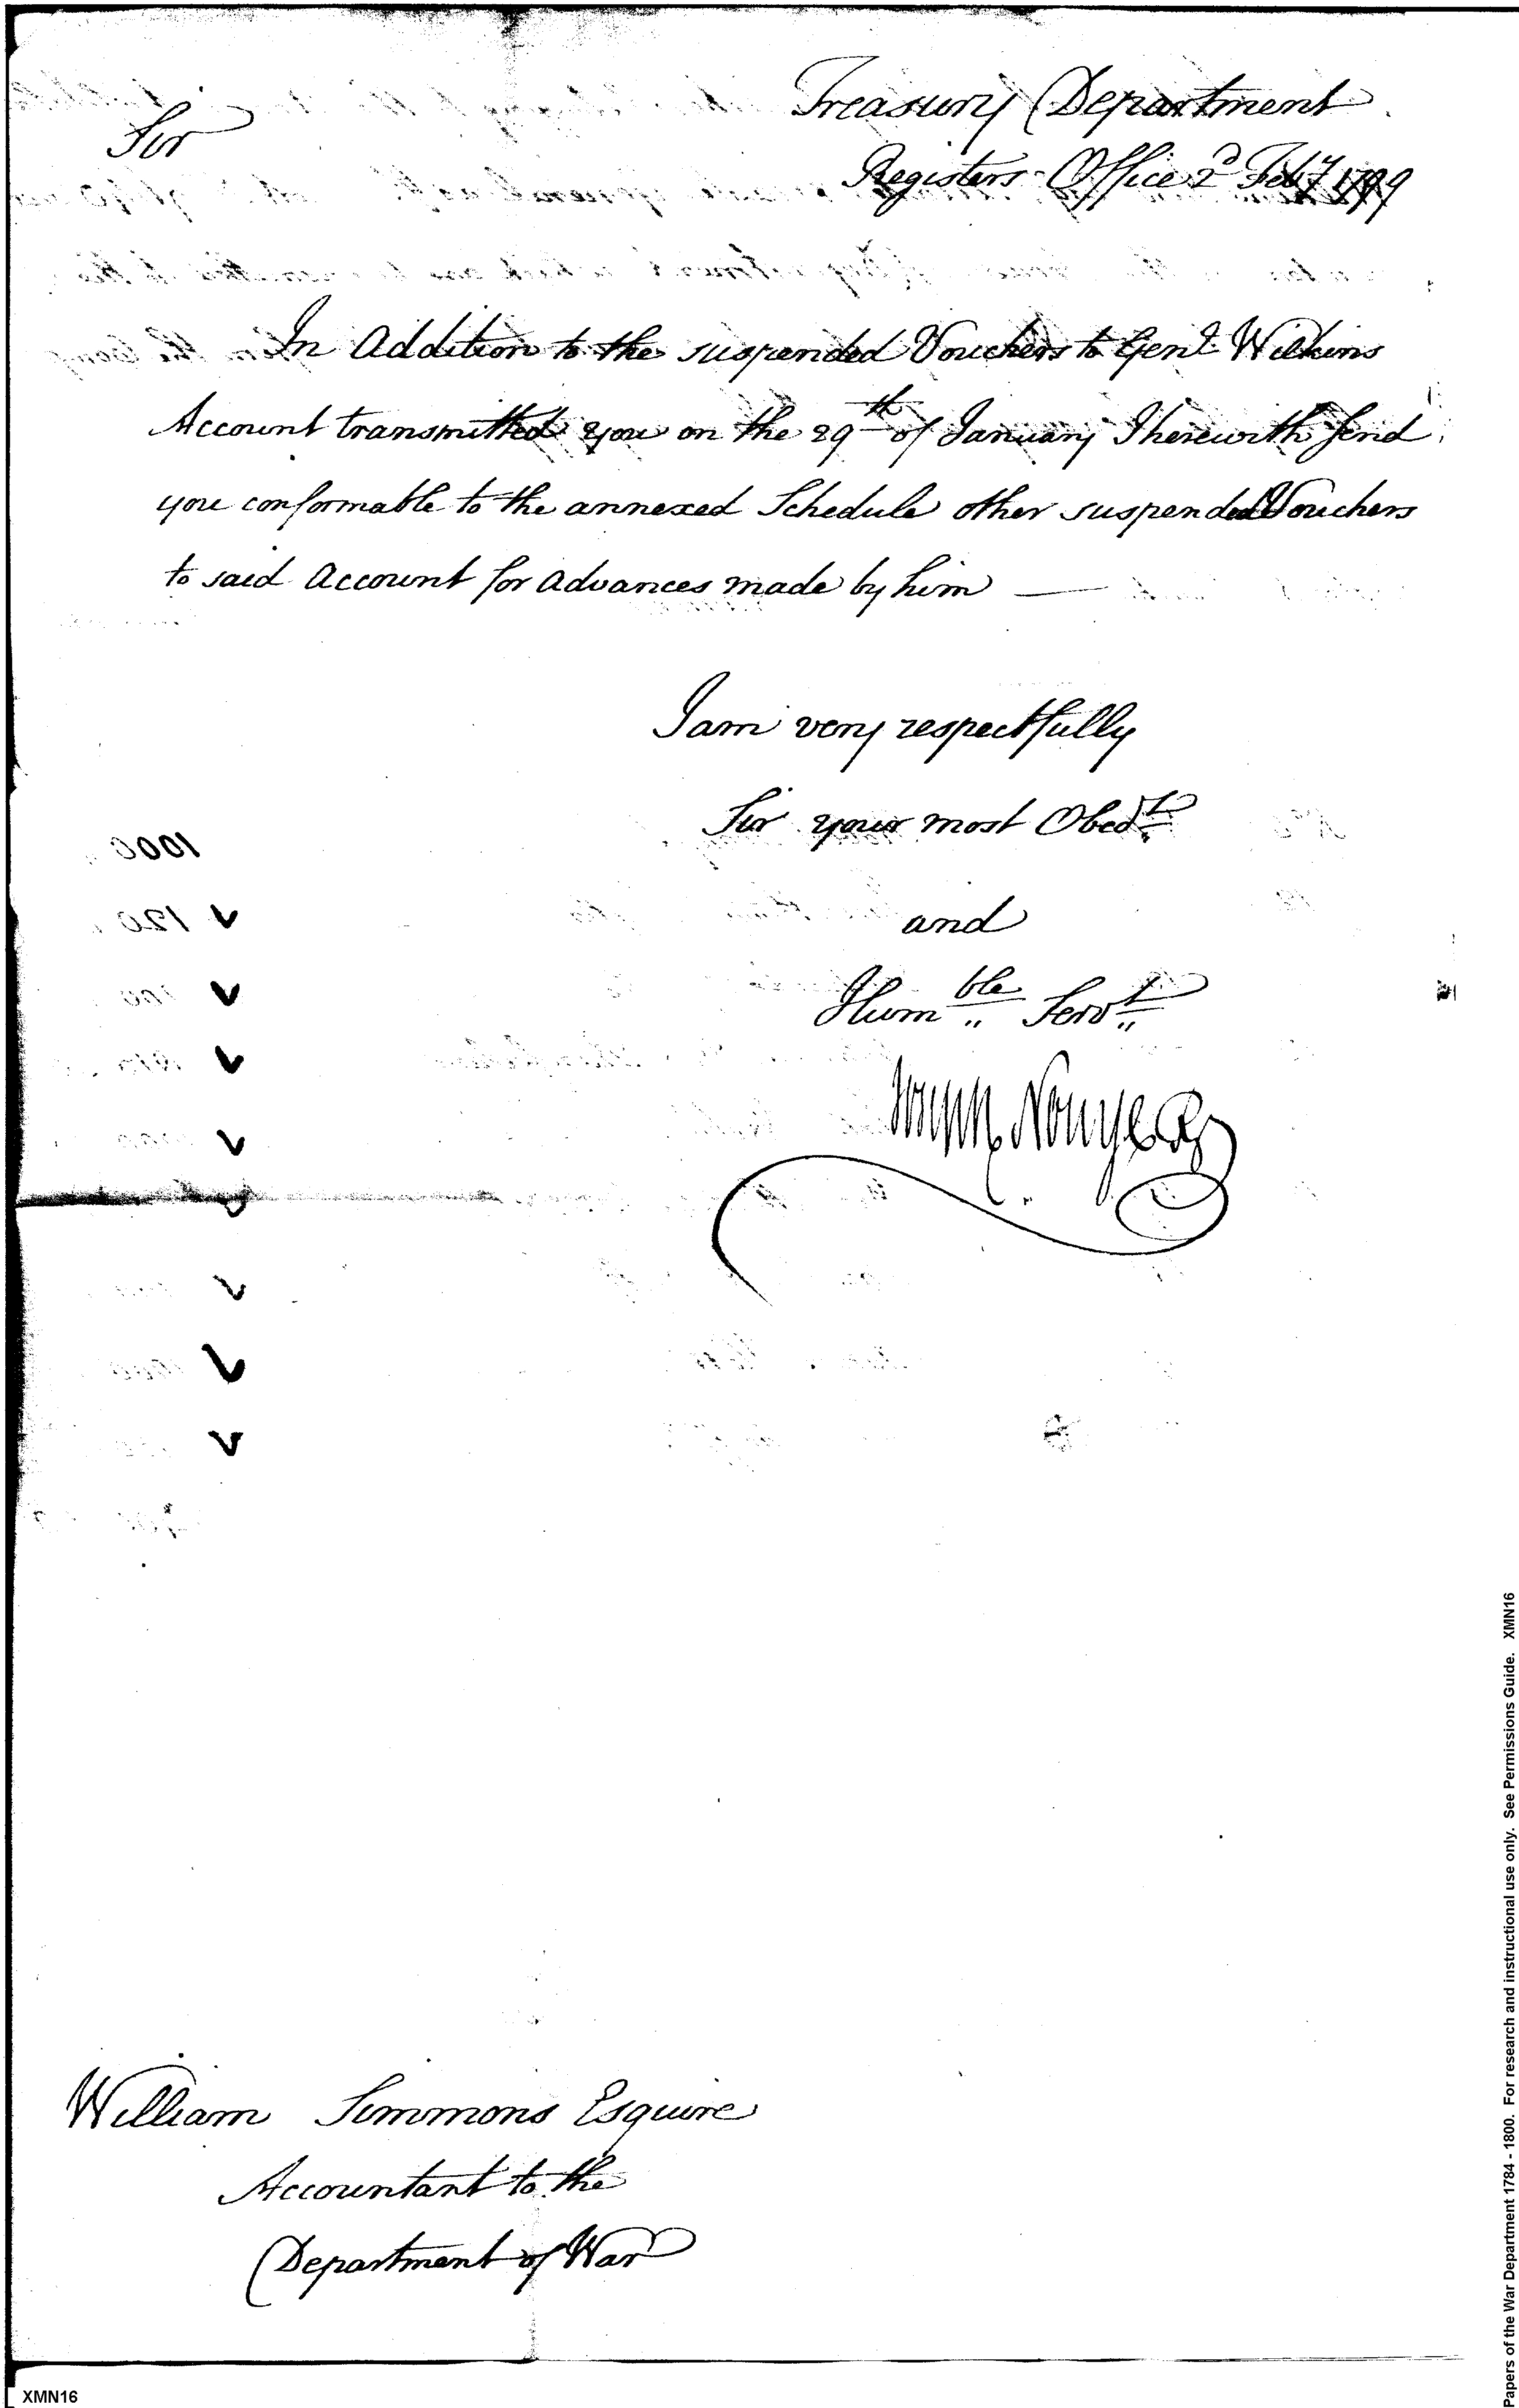 Treasury Department
Sir
Registers Office 2d Feby 1799
In Addition to the suspended Vouchers to Genl Wilkins
Account transmitted you on the 29th of January I herewith send
you conformable to the annexed Schedule other suspended Vouchers
to said Account for advances made by him —
I am very respectfully
Sir your most Obedt
and
Humble Servt
Joseph Nourse
1000
120
William Simmons Esquire
Accountant to the
Department of War
XMN16
Papers of the War Department 1784 - 1800. For research and instructional use only. See Permissions Guide. XMN16